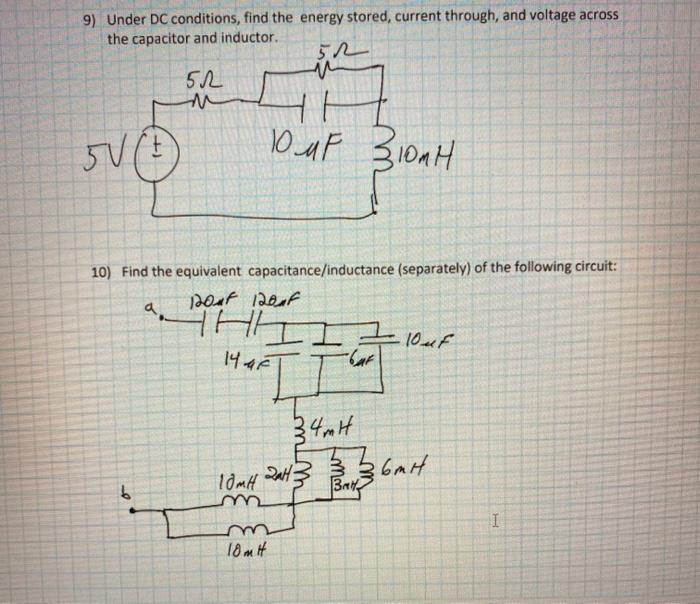 9) Under DC conditions, find the energy stored, current through, and voltage across
the capacitor and inductor.
5Ω
5Ω
5V
10uF
10mH
10) Find the equivalent capacitance/inductance (separately) of the following circuit:
a
120uF 120uF
10uF
14uF
6uF
4mH
10mH
2mH
3mH
6mH
b
10mH